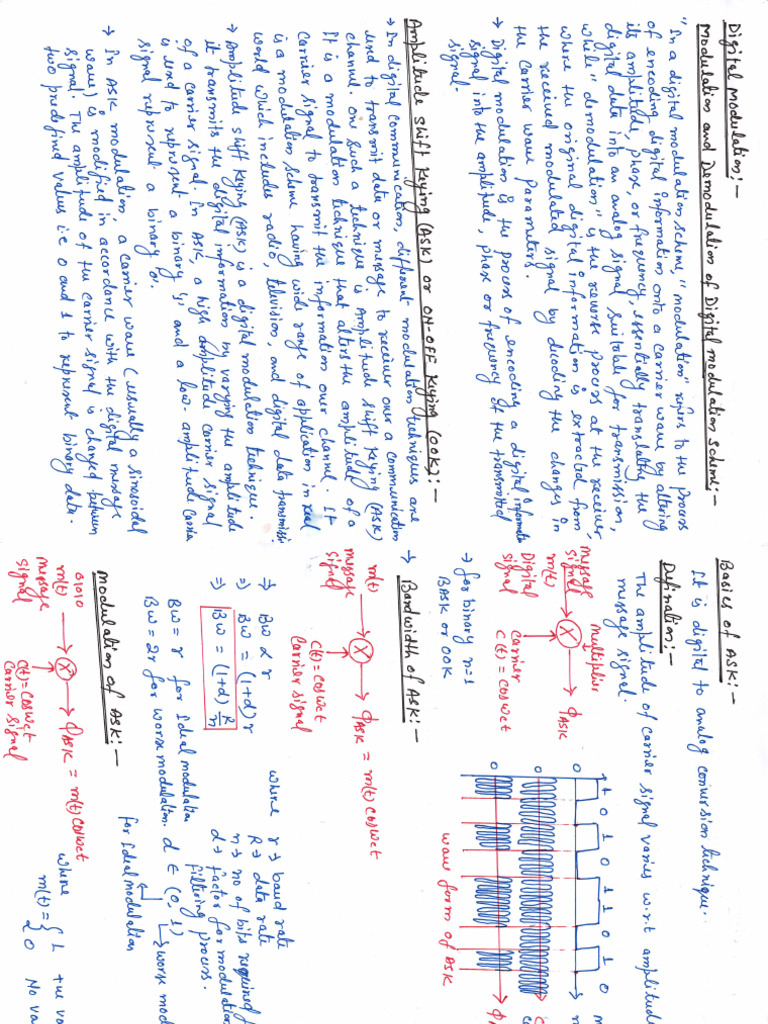 Digital Modulation:-
Modulation and Demodulation of Digital modulation scheme:-
"In a digital modulation scheme," modulation" refers to the process
of encoding digital information onto a carrier wave by altering
its amplitude, phase, or frequency essentially translating the
digital data into an analog signal suitable for transmission,
while "demodulation" is the reverse process at the receiver,
where the original digital information is extracted from
the received modulated signal by decoding the changes in
the carrier wave parameters.
→ Digital modulation is the process of encoding a digital information
signal into the amplitude, phase or frequency of the transmitted
signal.
Amplitude shift Keying (ASK) or ON-OFF Keying (OOK):-
→ In digital communication, different modulation techniques are
used to transmit data or message to receiver over a communication
channel. One such a technique is Amplitude shift Keying (ASK)
It is a modulation technique that alters the amplitude of a
carrier signal to transmit the information over channel. It
is a modulation scheme having wide range of application in real
world which includes radio, television, and digital data transmissi
→ Amplitude shift Keying (ASK) is a digital modulation technique.
it transmits the digital information by varying the amplitude
of a carrier signal. In ASK, a high amplitude carrier signal
is used to represent a binary '1' and a low-amplitude carrier
signal represent a binary 0.
→ In ASK modulation, a carrier wave (usually a sinosoidal
wave) is modified in accordance with the digital message
signal. The amplitude of the carrier signal is changed between
two predefined values i.e 0 and 1 to represent binary data.
Basics of ASK:-
It is digital to analog conversion technique..
Defination:-
The amplitude of carrier signal varies w.r.t amplitude
message signal.
message signal
m(t)
Digital signal
multiplier
X
ϕASK
carrier
c(t) = cosWct
1 0 1 0 1 1 0 1 0
0
0
0
wave form of ASK
→ for binary n=1
BASK or OOK
→ Bandwidth of ASK:-
m(t)
message signal
X
ϕASK = m(t) cosWct
c(t) = cosWct
carrier signal
⇒ BW ∝ r
⇒ BW = (1+d) r
⇒ BW = (1+d) R/n
where r → baud rate
R → data rate
n → no of bits required
d → factor for modulation
filtering process.
BW = r for Ideal modulation
BW = 2r for worse modulation.
d ∈ (0, 1)
for Ideal modulation
worse mod
Modulation of ASK:-
01010
m(t)
message signal
X
ϕASK = m(t) cosWct
c(t) = cosWct
carrier signal
where
m(t) = { 1 +ve
0 No